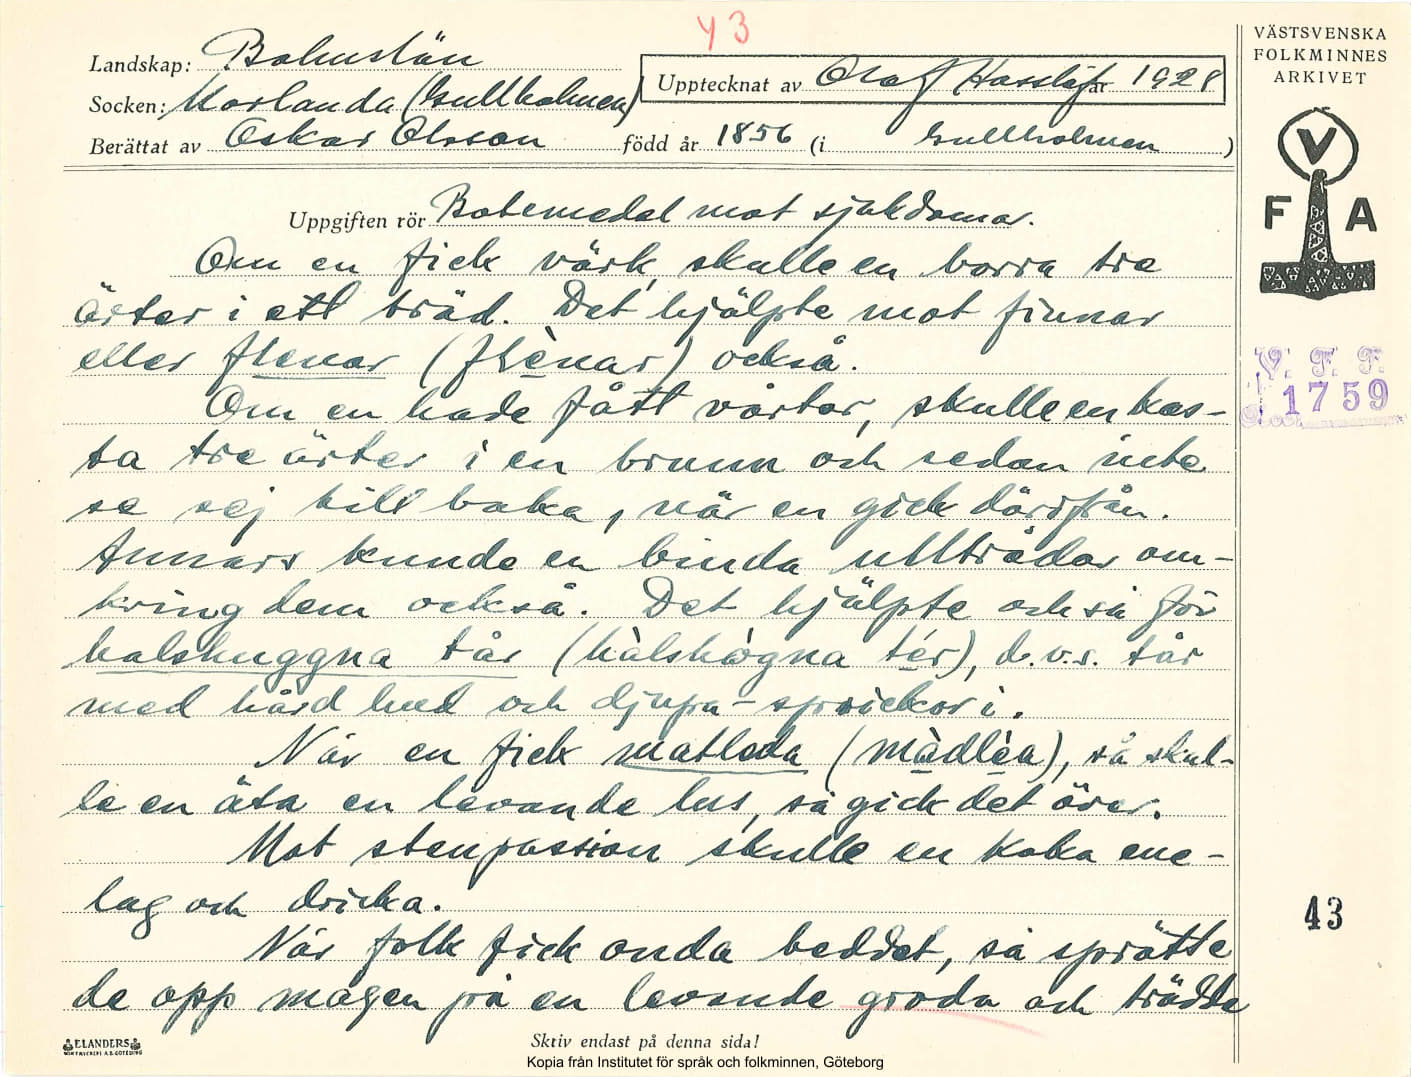 43
Landskap: Bohuslän
Socken: Morlanda (Gullholmen)
Upptecknat av Olof Hasslöf år 1928
Berättat av Oskar Olsson född år 1856 (i Gullholmen)
VÄSTSVENSKA
FOLKMINNES
ARKIVET
V
F A
V. F. F.
1759
Uppgiften rör Botemedel mot sjukdomar.
Om en fick värk, skulle en borra tre
ärter i ett träd. Det hjälpte mot finnar
eller flenar (flènar) också.
Om en hade fått vårtor, skulle en kas-
ta tre ärter i en brunn och sedan inte
se sej till baka, när en gick därifrån.
Annars kunde en binda ulltrådar om-
kring dem också. Det hjälpte också för
halshuggna tår (hàlshògna tér), d.v.s. tår
med hård hud och djupa sprickor i.
När en fick matleda (màdlèa), så skul-
le en äta en levande lus, så gick det över.
Mot stenpassion skulle en koka ene-
lag och dricka.
När folk fick onda beddet, så sprätte
de opp magen på en levande groda och trädde
43
ELANDERS
Skriv endast på denna sida!
Kopia från Institutet för språk och folkminnen, Göteborg